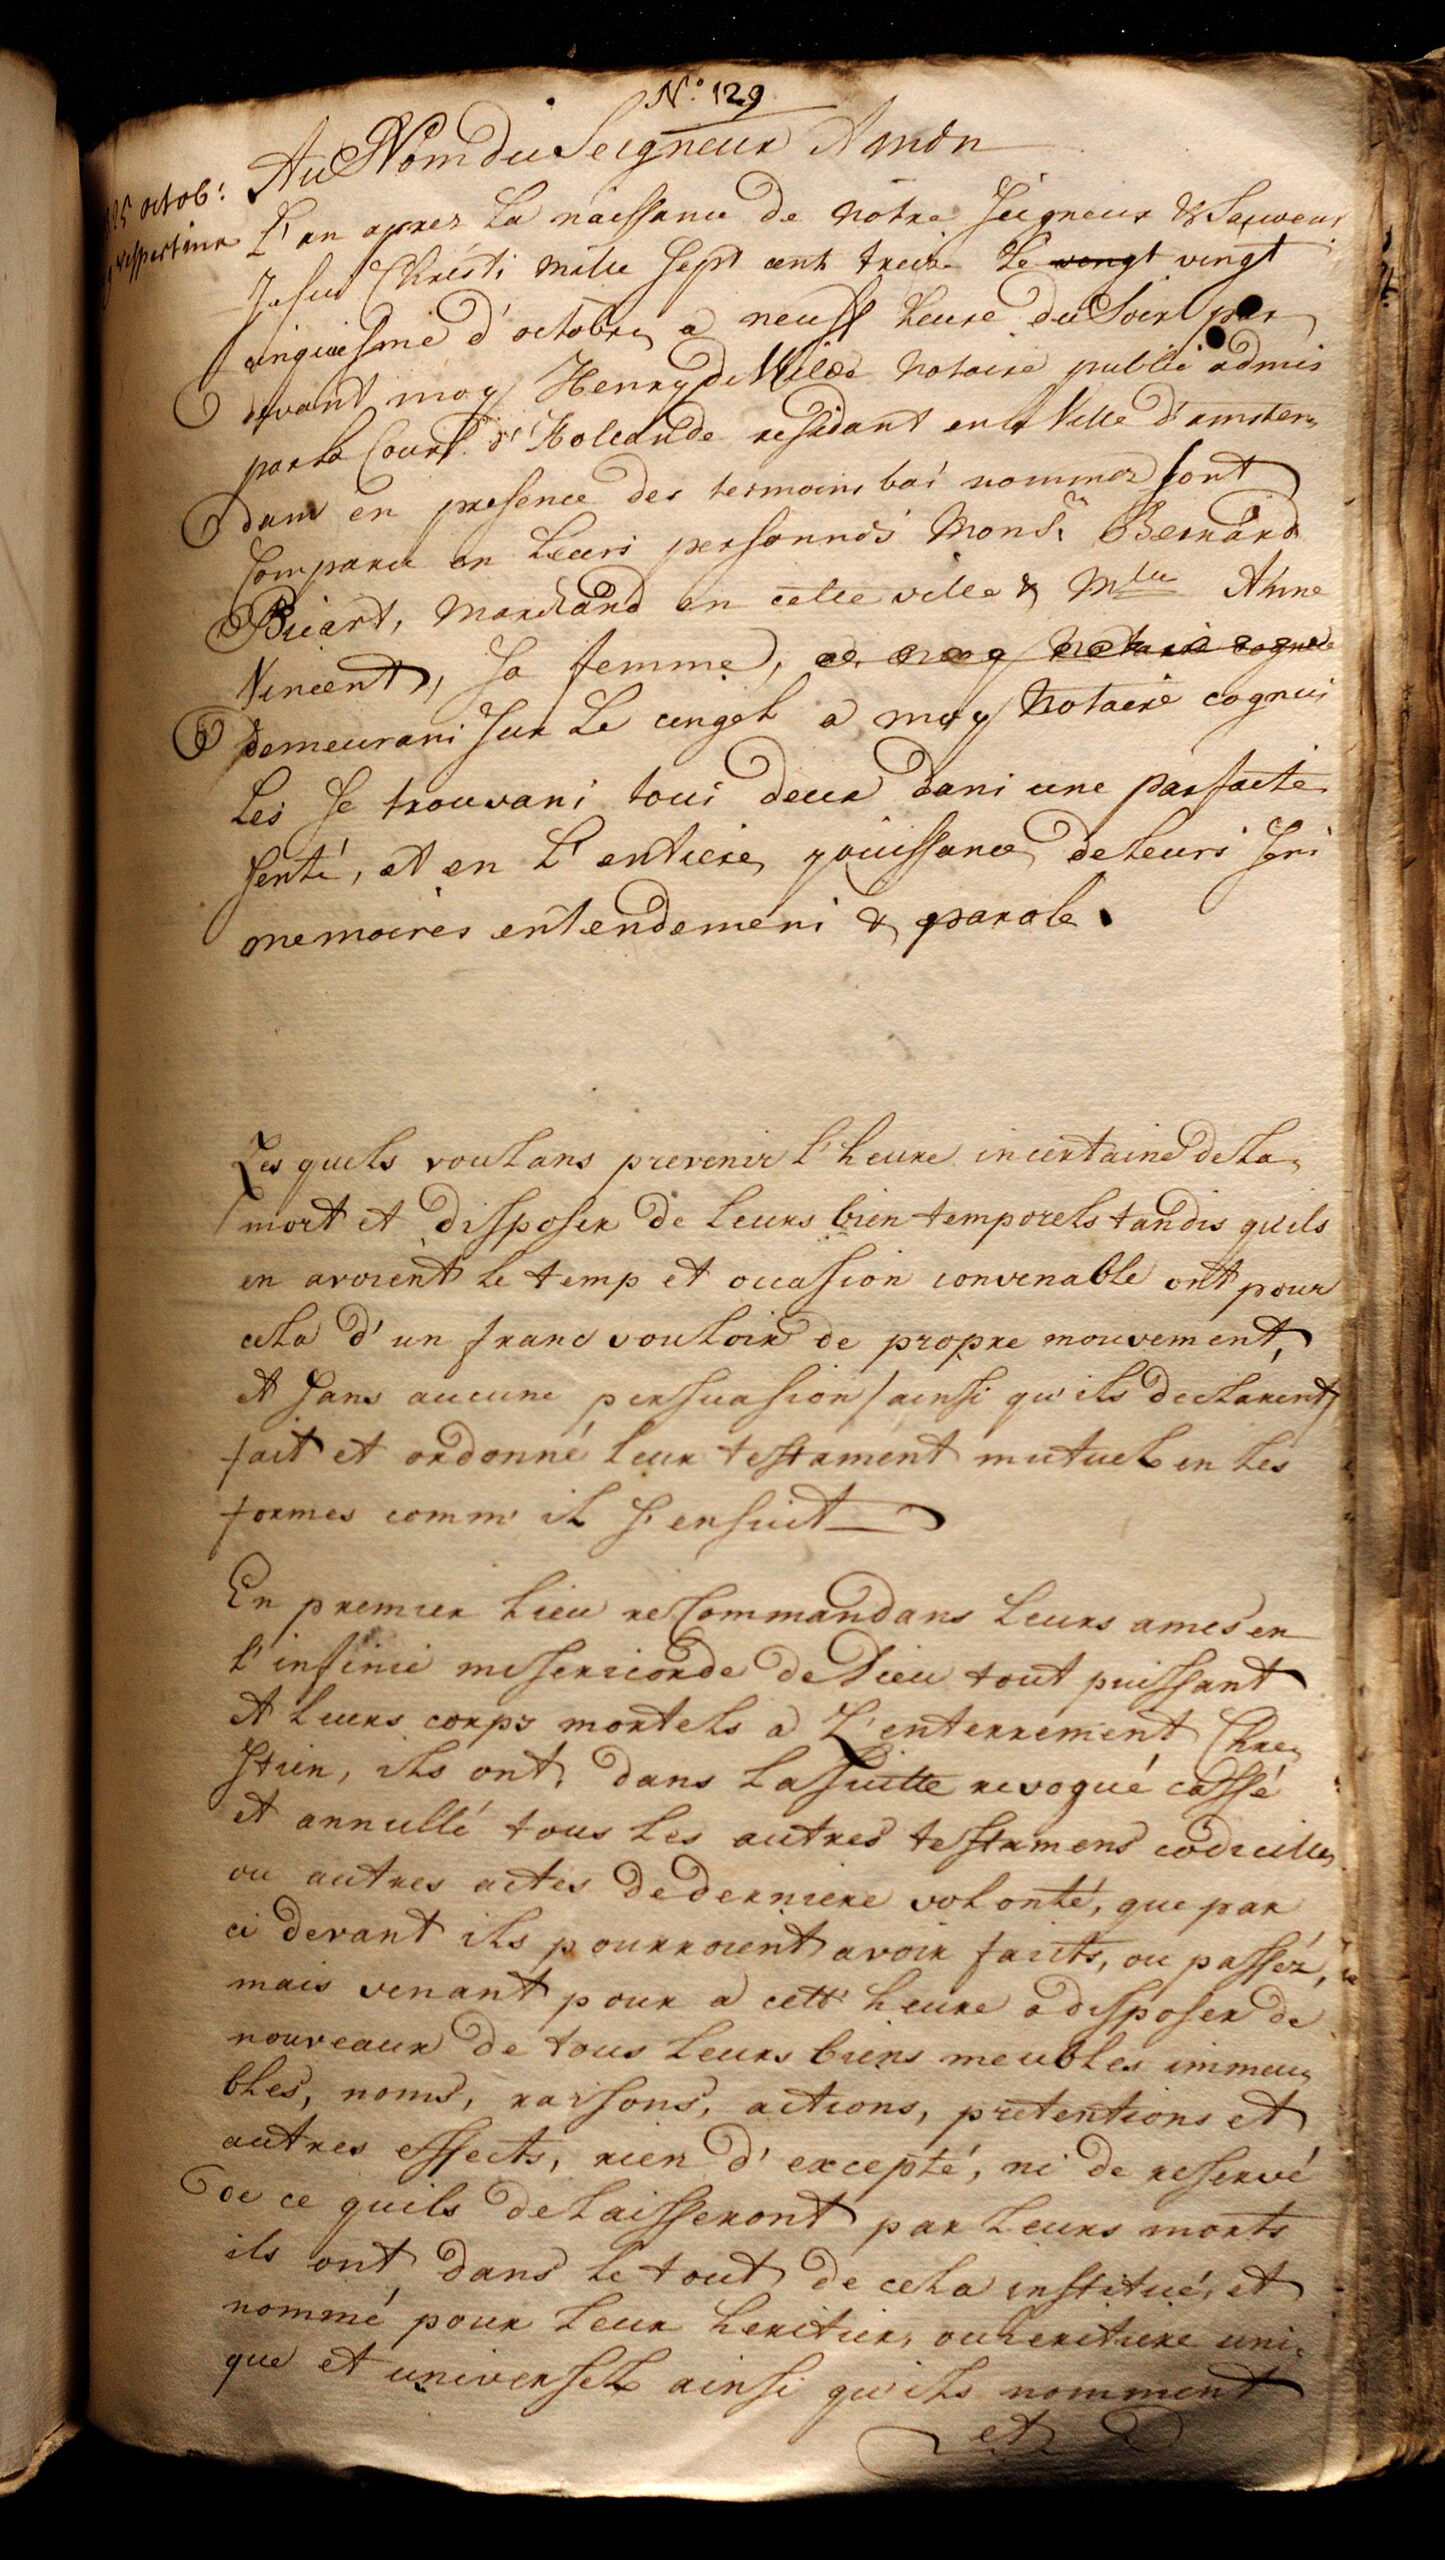 N.o 129
Au Nom du Seigneur Amen
25 octob:
9 vespertina
L'an aprez La naissance de notre Seigneur & Sauveur
Jesus Christi mille sept cent treize Le vingt vingt
cinquiesme d'octobre a neuff heure du Soir par
devant moy Henry de Wilde Notaire publicq admis
par La Court d'Hollande residant en la Ville d'amster,
dam en presence des tesmoins bas nommez sont
Comparu en Leurs personnes Mons.r Bernard
Picart, Marchand en cette ville & Mlle Anne
Vincent, sa femme, a moy Notaire cognus
demeurans sur Le cingel a moy Notaire cognus
Les se trouvans tous deux dans une parfaite
senté, et en L'entiere jouissance de Leurs sens
memoires entendement & parole.
Les quels voulans prevenir l'heure incertaine de la,
mort et disposer de leurs bien temporels tandis qu'ils
en avoient le temp et occasion convenable ont pour
cela d'un franc vouloir de propre mouvement,
et sans aucune persuasion (ainsi qu'ils declarent)
fait et ordonné leur testament mutuel en les
formes comm' il s'ensuit
En premier lieu recommandans leurs ames en
l'infinie misericorde de Dieu tout puissant
et leurs corps mortels a L'enterrement Chre,
stien, ils ont dans la suitte revoqué cassé
et annullé tous les autres testamens codicilles
ou autres actes de derniere volonté, que par
ci devant ils pourroient avoir faits, ou passéz,
mais venant pour a cett' heure a disposer de
nouveaux de tous leurs biens meubles immeu,
bles, noms, raisons, actions, pretentions et
autres effects, rien d'excepté, ni de reservé
de ce quils delaisseront par leurs morts
ils ont dans le tout de cela institué, et
nommé pour leur heritier, ou heritiere uni,
que et universel ainsi qu'ils nomment
et